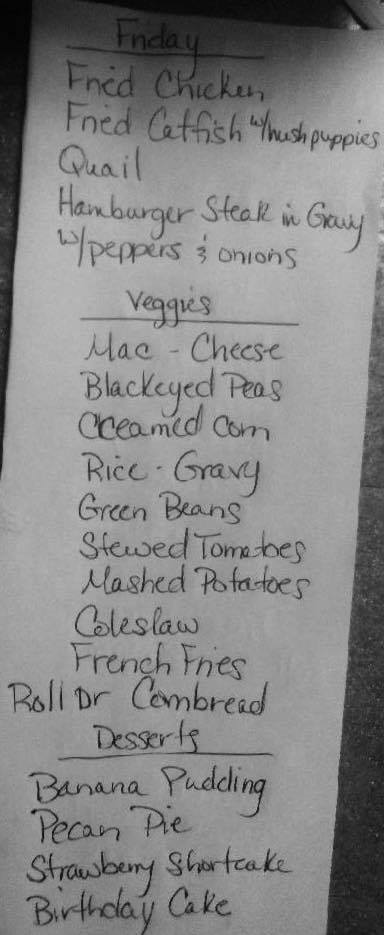 Friday
Fried Chicken
Fried Catfish w/hushpuppies
Quail
Hamburger Steak in Gravy
w/peppers & onions
Veggies
Mac - Cheese
Blackeyed Peas
Creamed Corn
Rice - Gravy
Green Beans
Stewed Tomatoes
Mashed Potatoes
Coleslaw
French Fries
Roll Or Cornbread
Desserts
Banana Pudding
Pecan Pie
Strawberry Shortcake
Birthday Cake